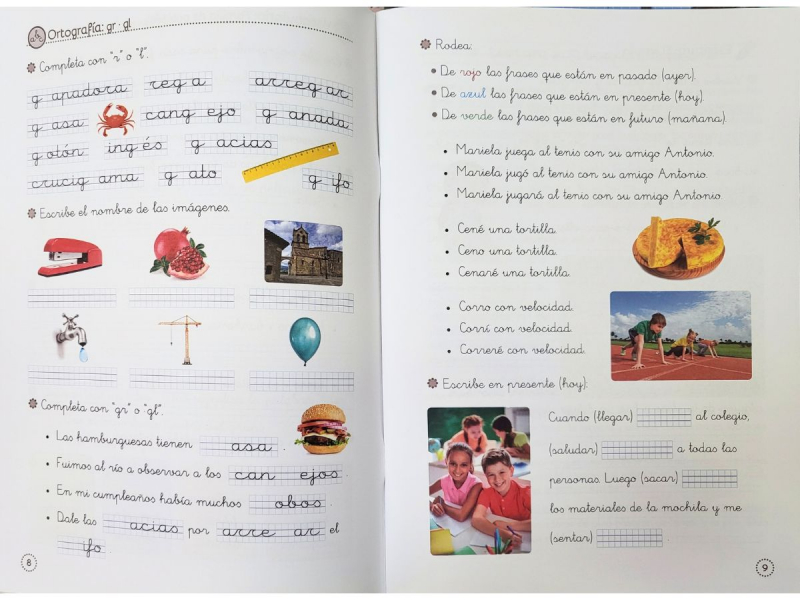 Ortografía: gr - gl
Completa con "r" o "l".
g apadora reg a arreg ar
g asa cang ejo g anada
g otón ing és g acias
crucig ama g ato g ifo
Escribe el nombre de las imágenes.
Completa con "gr" o "gl".
Las hamburguesas tienen asa.
Fuimos al río a observar a los can ejos.
En mi cumpleaños había muchos obos.
Dale las acias por arre ar el
ifo.
8
Rodea:
De rojo las frases que están en pasado (ayer).
De azul las frases que están en presente (hoy).
De verde las frases que están en futuro (mañana).
Mariela juega al tenis con su amigo Antonio.
Mariela jugó al tenis con su amigo Antonio.
Mariela jugará al tenis con su amigo Antonio.
Cené una tortilla.
Ceno una tortilla.
Cenaré una tortilla.
Corro con velocidad.
Corrí con velocidad.
Correré con velocidad.
Escribe en presente (hoy):
Cuando (llegar) al colegio,
(saludar) a todas las
personas. Luego (sacar)
los materiales de la mochila y me
(sentar)
9